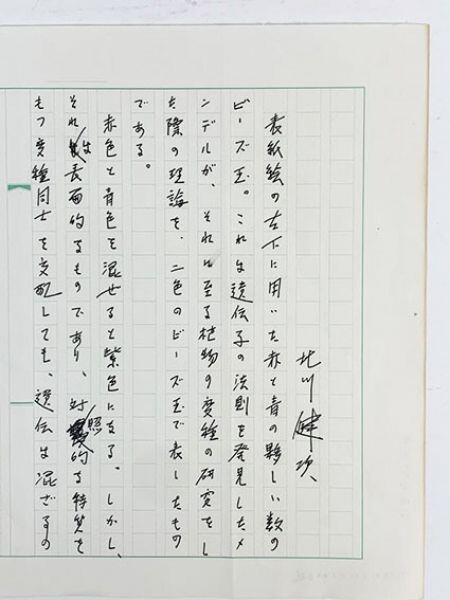 北川健次
表紙絵の左下に用いた赤と青の夥しい数の
ビーズ玉。これは遺伝子の法則を発見したメ
ンデルが、それに至る植物の変種の研究をし
た際の理論を、二色のビーズ玉で表したもの
である。
赤色と青色を混ぜると紫色になる。しかし、
それは表面的なものであり、対照的な特質を
もつ変種同士を交配しても、遺伝は混ざるの